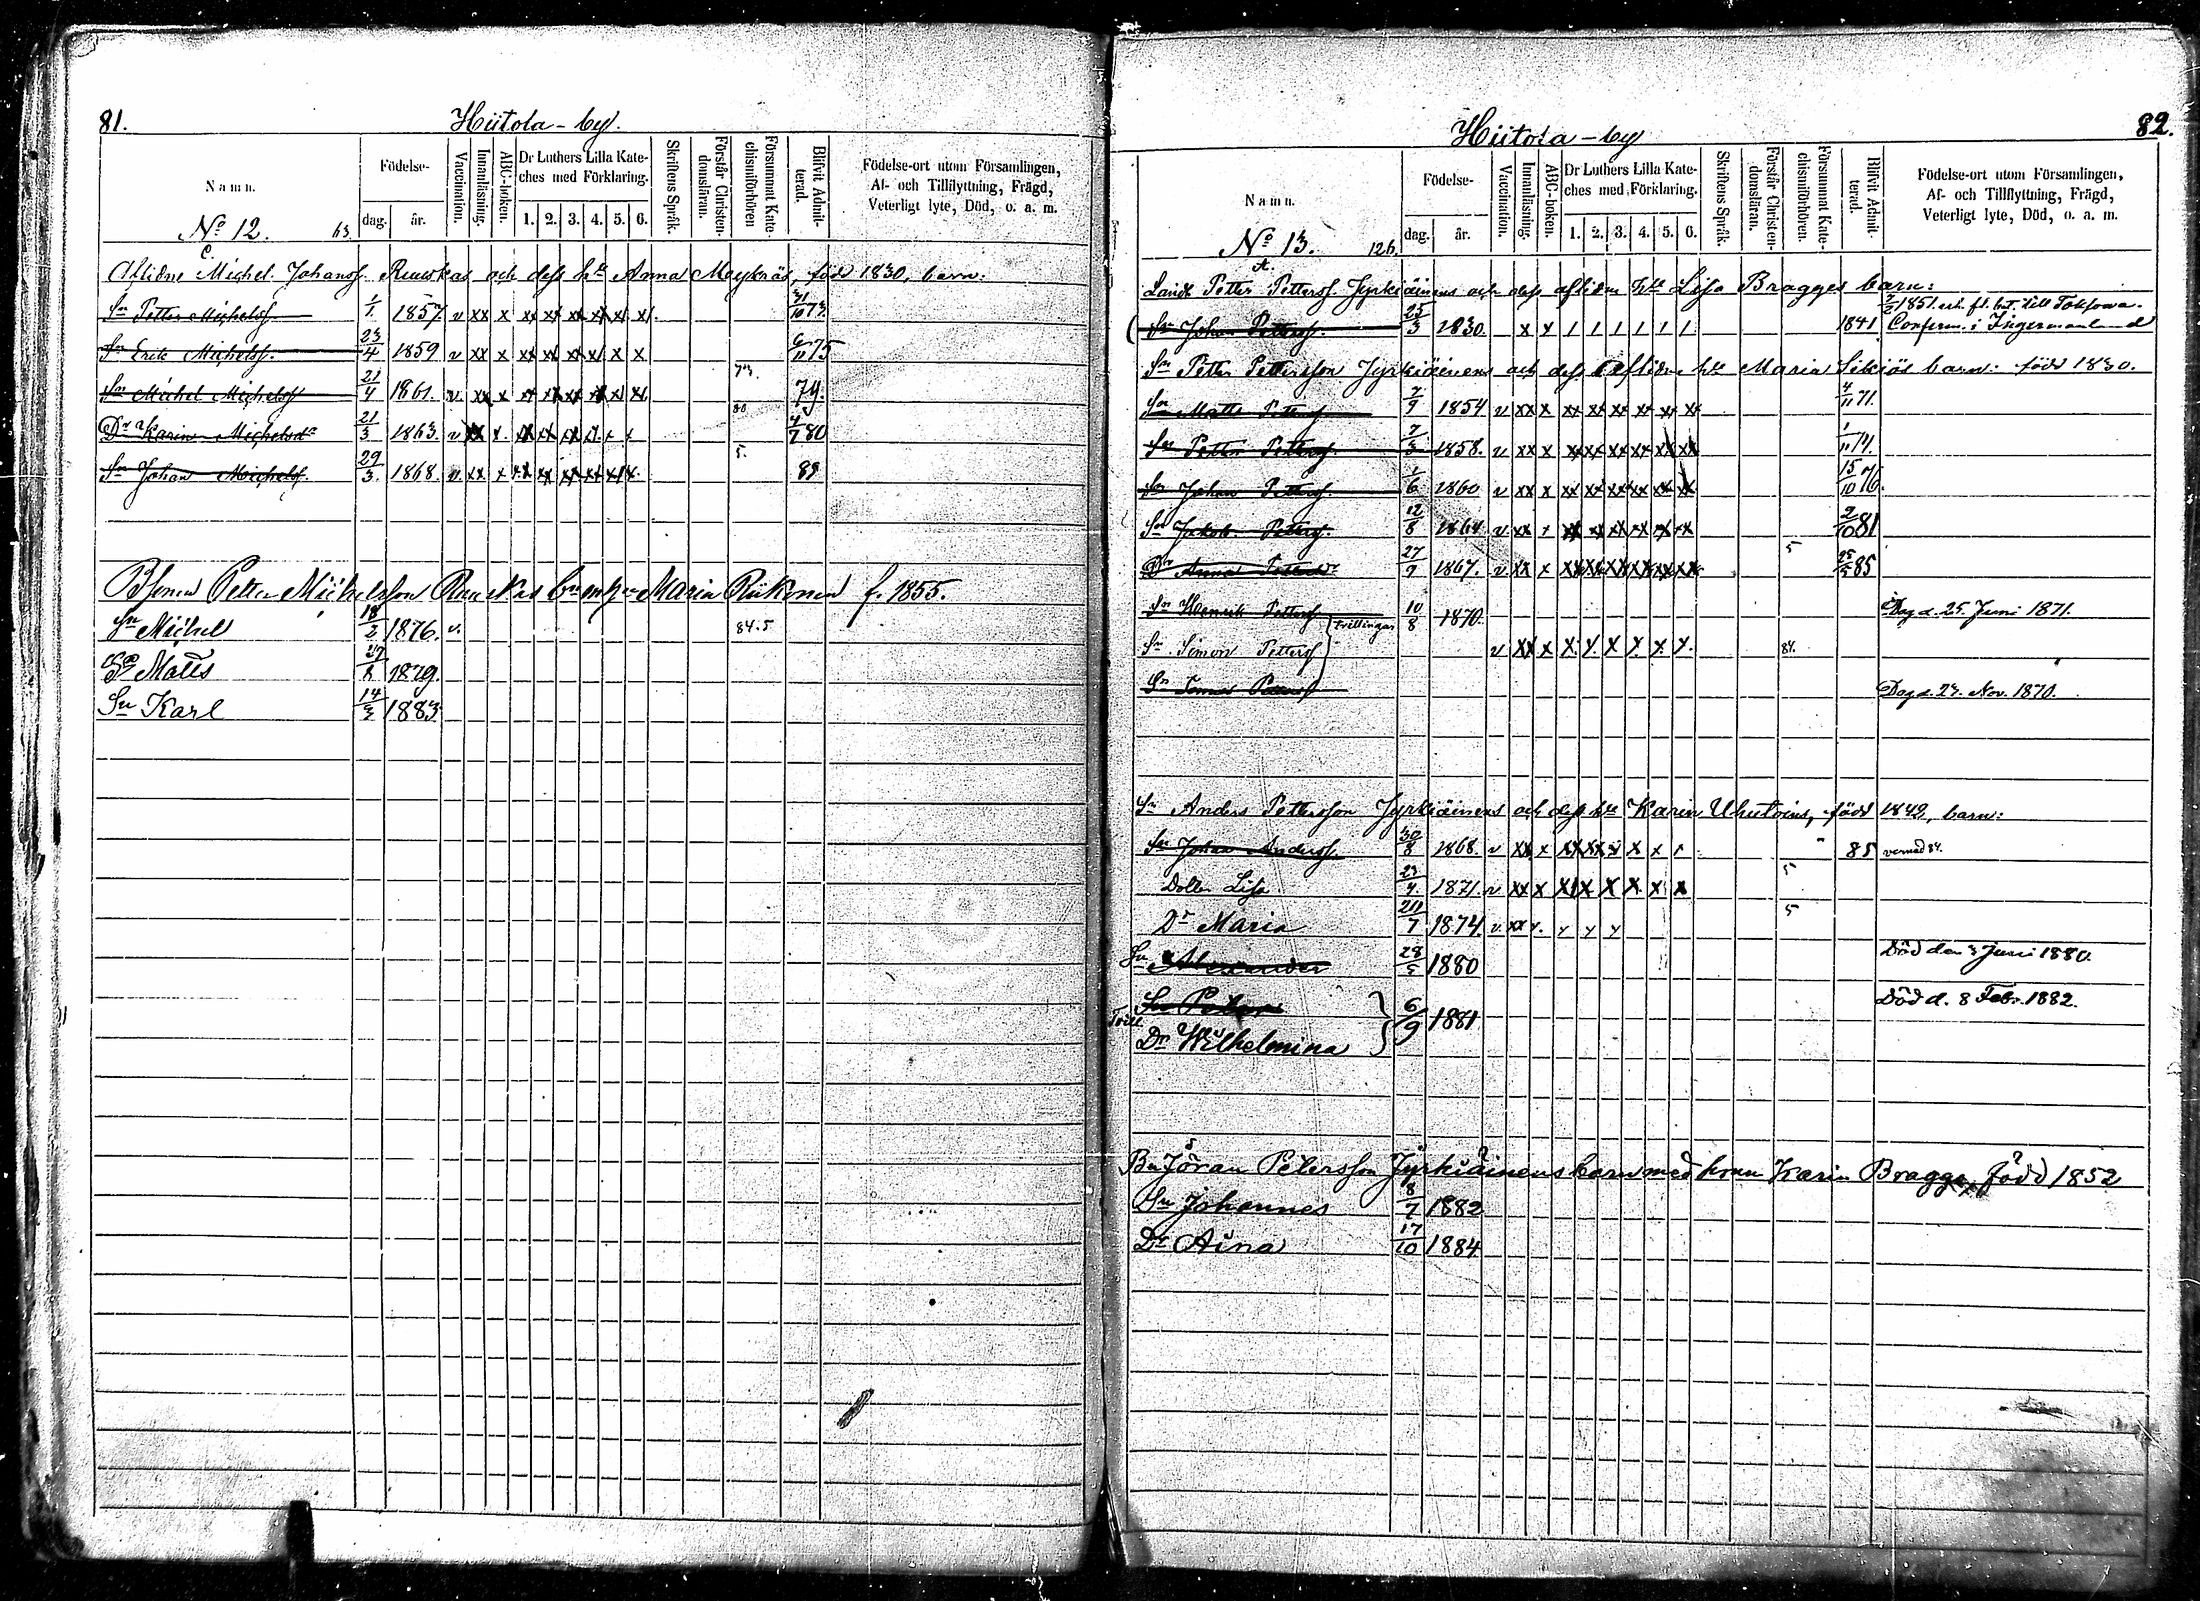 81.
Hiitola - by.
Namn.
Födelse-
dag.
år.
Vaccination.
Innanläsning.
ABC-boken.
Dr Luthers Lilla Kate-
ches med Förklaring.
1. 2. 3. 4. 5. 6.
Skriftens Språk.
Förstår Christen-
domsläran.
Försummat Kate-
chismiförhören
Blifvit Admit-
terad.
Födelse-ort utom Församlingen,
Af- och Tillflyttning, Frägd,
Veterligt lyte, Död, o. a. m.
No 12. 63.
C.
Aflidne Michel Johanss. Ruuskas och dess hu Anna Moykräs, född 1830, barn:
Sn Petter Michelss. 1/1 1857 v xx x xx xx xx xx x x 31/10 73.
Sn Erik Michelss. 23/4 1859 v xx x xx xx xx xx x x 6/11 75
Sn Michel Michelss. 21/4 1861. v xx x xx xx xx xx x xx 73. 79.
Dr Karin Michelsdr 21/3 1863. v xx x. xx xx xx x x x 80 4/7 80
Sn Johan Michelss. 29/3. 1868. v. xx x xx xx xx xx xx x. 5. 85
Bsonen Petter Michelsson Ruuskas barn m hu Maria Riikonen f. 1855.
Sn Michel 18/2 1876. v. 84.5
Sn Matts 27/2 1879.
Sn Karl 14/3 1883
82.
Hiitola - by
Namn.
Födelse-
dag.
år.
Vaccination.
Innanläsning.
ABC-boken.
Dr Luthers Lilla Kate-
ches med Förklaring.
1. 2. 3. 4. 5. 6.
Skriftens Språk.
Förstår Christen-
domsläran.
Försummat Kate-
chismiförhören.
Blifvit Admit-
terad.
Födelse-ort utom Församlingen,
Af- och Tillflyttning, Frägd,
Veterligt lyte, Död, o. a. m.
No 13. 126.
A.
Landb Petter Petterss. Jyrkiäinens och dess aflidne hu Lisa Bragges barn:
1851 erh. fl. bet. till Toksowa.
Sn Johan Petterss. 25/3 1830. x x 1 1 1 1 1 1 1841 Conferm. i Ingermanland
Sn Petter Pettersson Jyrkiäinens och dess aflidne hu Maria Sikiös barn: född 1830.
Sn Matts Petterss. 7/9 1854 v xx x xx xx xx xx xx xx 4/11 71.
Sn Petter Petterss. 7/3 1858. v xx x xx xx xx xx xx xx 1/11 74.
Sn Johan Petterss. 1/6 1860 v xx x xx xx xx xx xx xx 15/10 76.
Sn Jakob Petterss. 12/8 1864 v. xx x xx xx xx xx xx xx 2/10 81
Dr Anna Pettersdr 27/9 1867. v xx x xx xx xx xx xx xx 5 25/5 85
Sn Henrik Petterss 10/8 1870. Dog d. 25. Juni 1871.
trillingar
Sn Simon Petterss v xx x x x x x x x. 84.
Sn Tomas Petterss Dog d. 23. Nov. 1870.
Sn Anders Pettersson Jyrkiäinens och dess hu Karin Uhutoins, född 1842, barn:
Sn Johan Anderss. 30/8 1868. v xx x xx xx x x x x 85
Dottr Lisa 23/4. 1871. v xx x xx x x x x x 5
Dr Maria 20/7 1874. v xx x. x x x 5
Sn Alexander 28/5 1880 Död den 3 Juni 1880.
Sn Peter 6/9 1881 Död d. 8 Febr. 1882.
Tvill
Dr Wilhelmina
Bn Jöran Petersson Jyrkiäinens barn med hrun Karin Bragge, född 1852
Sn Johannes 8/7 1882
Dr Aina 17/10 1884